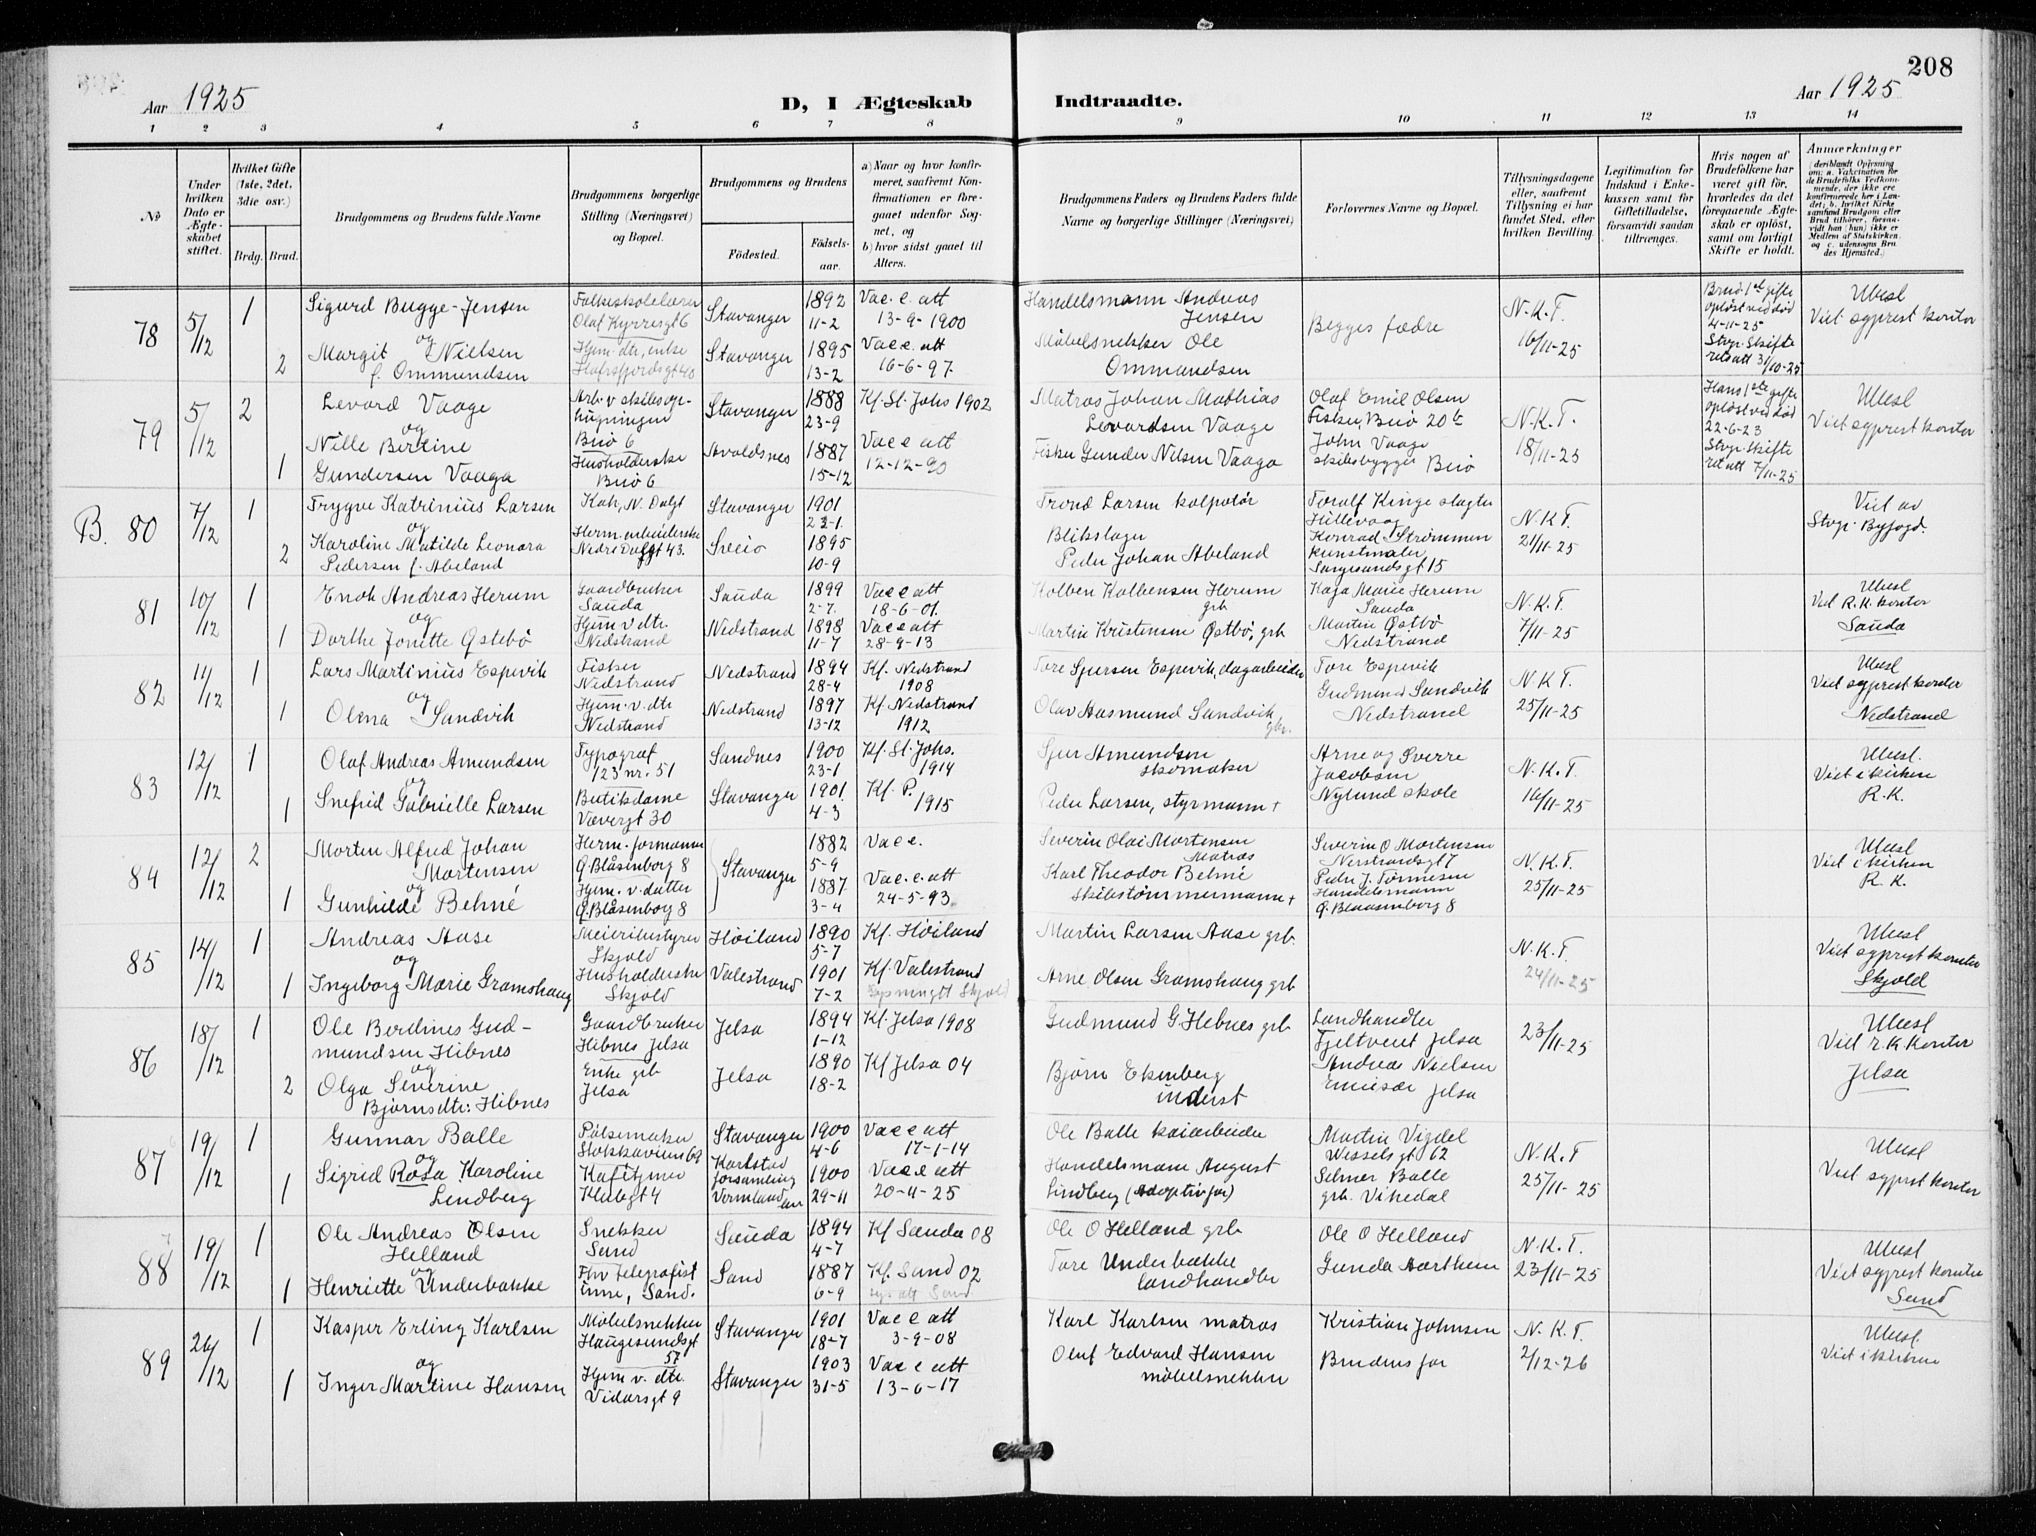 208
Aar 1925
D, I Ægteskab
Indtraadte.
Aar 1925
1 2 3 4 5 6 7 8 9 10 11 12 13 14
№
Under hvilken Dato er Ægteskabet stiftet.
Hvilket Gifte (1ste, 2det, 3die osv.)
Brdg. Brud.
Brudgommens og Brudens fulde Navne
Brudgommens borgerlige Stilling (Næringsvei) og Bopæl.
Brudgommens og Brudens
Födested.
Födselsaar.
a) Naar og hvor konfirmeret, saafremt Konfirmationen er foregaaet udenfor Sognet, og
b) hvor sidst gaaet til Alters.
Brudgommens Faders og Brudens Faders fulde Navne og borgerlige Stillinger (Næringsvei)
Forlovernes Navne og Bopæl.
Tillysningsdagene eller, saafremt Tillysning ei har fundet Sted, efter hvilken Bevilling.
Legitimation for Indskud i Enkekassen samt for Giftetilladelse, forsaavidt saadan tiltrænges.
Hvis nogen af Brudefolkene har været gift för, hvorledes da det foregaaende Ægteskab er oplöst, samt om lovligt Skifte er holdt.
Anmærkninger
78 5/12 1
Sigurd Bugge-Jensen
og
2 Margit Nielsen
f. Ommundsen
Folkeskolelærer
Olaf Kyrresgt 6
Hjem. dtr, enke
Hafrsfjordsgt 40
Stavanger 1892 11-2
Stavanger 1895 13-2
Vac. e. att 13-9-1900
Vac e. att 16-6-97.
Handelsmann Andreas Jensen
Møbelsnekker Ole Ommundsen
Begges fædre
N.K.T. 16/11-25
Brud. 1ste gifte opløst ved død 4-11-25
Stvgr. Skifteret att 31/10-25
Ubesl
Viet sgprest kontor
79 5/12 2
Levard Vaage
og
Nille Bertine
1 Gundersen Vaaga
Arb. v skibsophugningen
Buø 6
Husholderske
Buø 6
Stavanger 1888 23-9
Avaldsnes 1887 15-12
Kf. St. Johs 1902
Vac e att 12-12-90
Matros Johan Mathias Levardsen Vaage
Fisker Gunder Nilsen Vaaga
Olaf Emil Olsen
Fisker, Buø 20b
John Vaage
skibsbygger Buø
N.K.T. 18/11-25
Hans 1ste gifte opløst ved død 22-6-23
Stvgr. Skifteret att 7/11-25
Ubesl
Viet sgprest kontor
B. 80 7/12 1
Trygve Katrinius Larsen
og
2 Karoline Matilde Leonora
Pedersen f. Abeland
Nedre Dalgt 43.
Stavanger 1901 23-1.
Sveio 1895 10-9
Trond Larsen kolportør
Blikslager
Peder Johan Abeland
Toralf Kinge slagter
Hillevaag
Konrad Strømmen
kunstmaler
N.K.T. 21/11-25
Viet av
Stvgr. Byfogd.
81 10/12 1
Enok Andreas Herum
og
1 Dorthe Jonette Østebø
Gaardbruker
Sauda
Hjem v dtr.
Nedstrand
Sauda 1899 2-7.
Nedstrand 1898 11-7
Vac e att 18-6-01.
Vac e att 28-9-13
Kolben Kolbensen Herum grb
Martin Kristensen Østbø, grb
Kaja Marie Herum
Sauda
Martin Østbø
Nedstrand
N.K.T. 7/11-25
Ubesl
Viet R.K. kontor
Sauda
82 11/12 1
Lars Martinius Espevik
og
1 Olena Sandvik
Fisker
Nedstrand
Hjem. v. dtr
Nedstrand
Nedstrand 1894 28-4
Nedstrand 1897 13-12
Kf. Nedstrand 1908
Kf Nedstrand 1912
Tore Sjursen Espevik, dagarbeider
Olav Aasmund Sandvik gbr.
Tore Espevik
Gudmund Sandvik
Nedstrand
N.K.T. 25/11-25
Ubesl
Viet sgprest kontor
Nedstrand
83 12/12 1
Olaf Andreas Amundsen
og
1 Snefrid Gabrielle Larsen
Typograf
123 nr. 51
Butikdame
Vævergt 30
Sandnes 1900 23-1
Stavanger 1901. 4-3
Kf. St. Johs. 1914
Kf. P. 1915
Sjur Amundsen skomaker
Peder Larsen, styrmann +
Arne og Sverre
Jacobsen
Nylund skole
N.K.T. 14/11-25
Ubesl.
Viet i kirken
R.K.
84 12/12 2
Morten Alfred Johan
Mortensen
og
1 Gunhilde Behné
Herm. formann
Ø. Blåsenborg 8
Hjem. v. datter
Ø. Blåsenborg 8
Stavanger
1882 5-9
1887 3-4
Vac e.
Vac. e. att 24-5-93.
Severin Olai Mortensen Matros
Karl Theodor Behné
skibstømmermann +
Severin O Mortensen
Nerstrandsgt 7
Peder J. Tønnesen
Handelsmann
Ø. Blaasenborg 8
N.K.T. 25/11-25
Ubesl
Viet i kirken
R.K.
85 14/12 1
Andreas Aase
og
1 Ingeborg Marie Gramshaug
Meieribestyrer
Skjold
Husholderske
Skjold
Høiland 1890 5-7
Valestrand 1901 7-2
Kf. Høiland
Kf. Valestrand
Martin Larsen Aase grb.
Arne Olsen Gramshaug grb
N.K.T. 24/11-25
Ubesl
Viet sgprest kontor
Skjold
86 18/12 1
Ole Berdines Gud-
mundsen Hibnes
og
2 Olga Severine
Bjørnsdtr: Hibnes
Gaardbruker
Hibnes Jelsa
Enke grb
Jelsa
Jelsa 1894 1-12
Jelsa 1890 18-2
Kf. Jelsa 1908
Kf Jelsa 04
Gudmund G. Hebnes grb
Bjørn Ekenberg
inderst
Landhandler
Fjeltveit Jelsa
Andreas Nielsen
Emissær Jelsa
23/11-25
Ubesl
Viet r.k kontor
Jelsa
87 19/12 1
Gunnar Balle
og
1 Sigrid Rosa Karoline
Lindberg
Pølsemaker
Stokkaveien 69
Klubgt 4
Stavanger 1900 4-6
Karlstad forsamling Vermland 1900 29-11
Vac e att 17-1-14
Vac e att 20-4-25
Ole Balle kaiarbeider
Handelsmann August
Lindberg (adoptivfar)
Martin Vigdel
Wesselsgt 62
Selmer Balle
grb. Vikedal
N.K.T 25/11-25
Ubesl
Viet sgprest kontor
88 19/12 1
Ole Andreas Olsen
Helland
og
1 Henriette Underbakke
Snekker
Sand
Fhv telegrafist
inne, Sand.
Sauda 1894 4-7
Sand 1887 6-9
Kf Sauda 08
Kf. Sand 02
Ole O Helland grb
Tore Underbakke
landhandler
Ole O Helland
Gunda Aartheim
N.K.T. 23/11-25
Ubesl
Viet sgprest kontor
Sand
89 26/12 1
Kasper Erling Karlsen
og
1 Inger Martine Hansen
Møbelsnekker
Haugesundsgt 57
Hjem v. dtr.
Vidarsgt 9
Stavanger 1901 18-7
Stavanger 1903 31-5
Vac e att 3-9-08
Vac e att 13-6-17
Karl Karlsen matros
Oluf Edvard Hansen
møbelsnekker
Kristian Johnsen
Brudens far
N.K.T. 2/12-26
Ubesl.
Viet i kirken